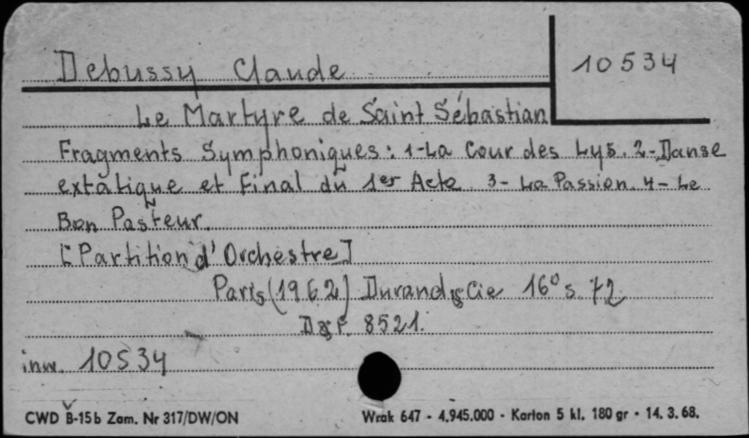 Debussy Claude
10534
Le Martyre de Saint Sébastian
Fragments Symphoniques: 1-La Cour des Lys. 2-Danse
extatique et Final du 1er Acte 3- La Passion. 4- Le
Bon Pasteur.
[Partition d'Orchestre]
Paris (1962) Durand & Cie 16° s. 72
D & F. 8521.
inw. 10534
CWD B-15b Zam. Nr 317/DW/ON
Wrak 647 - 4.945.000 - Karton 5 kl. 180 gr - 14. 3. 68.